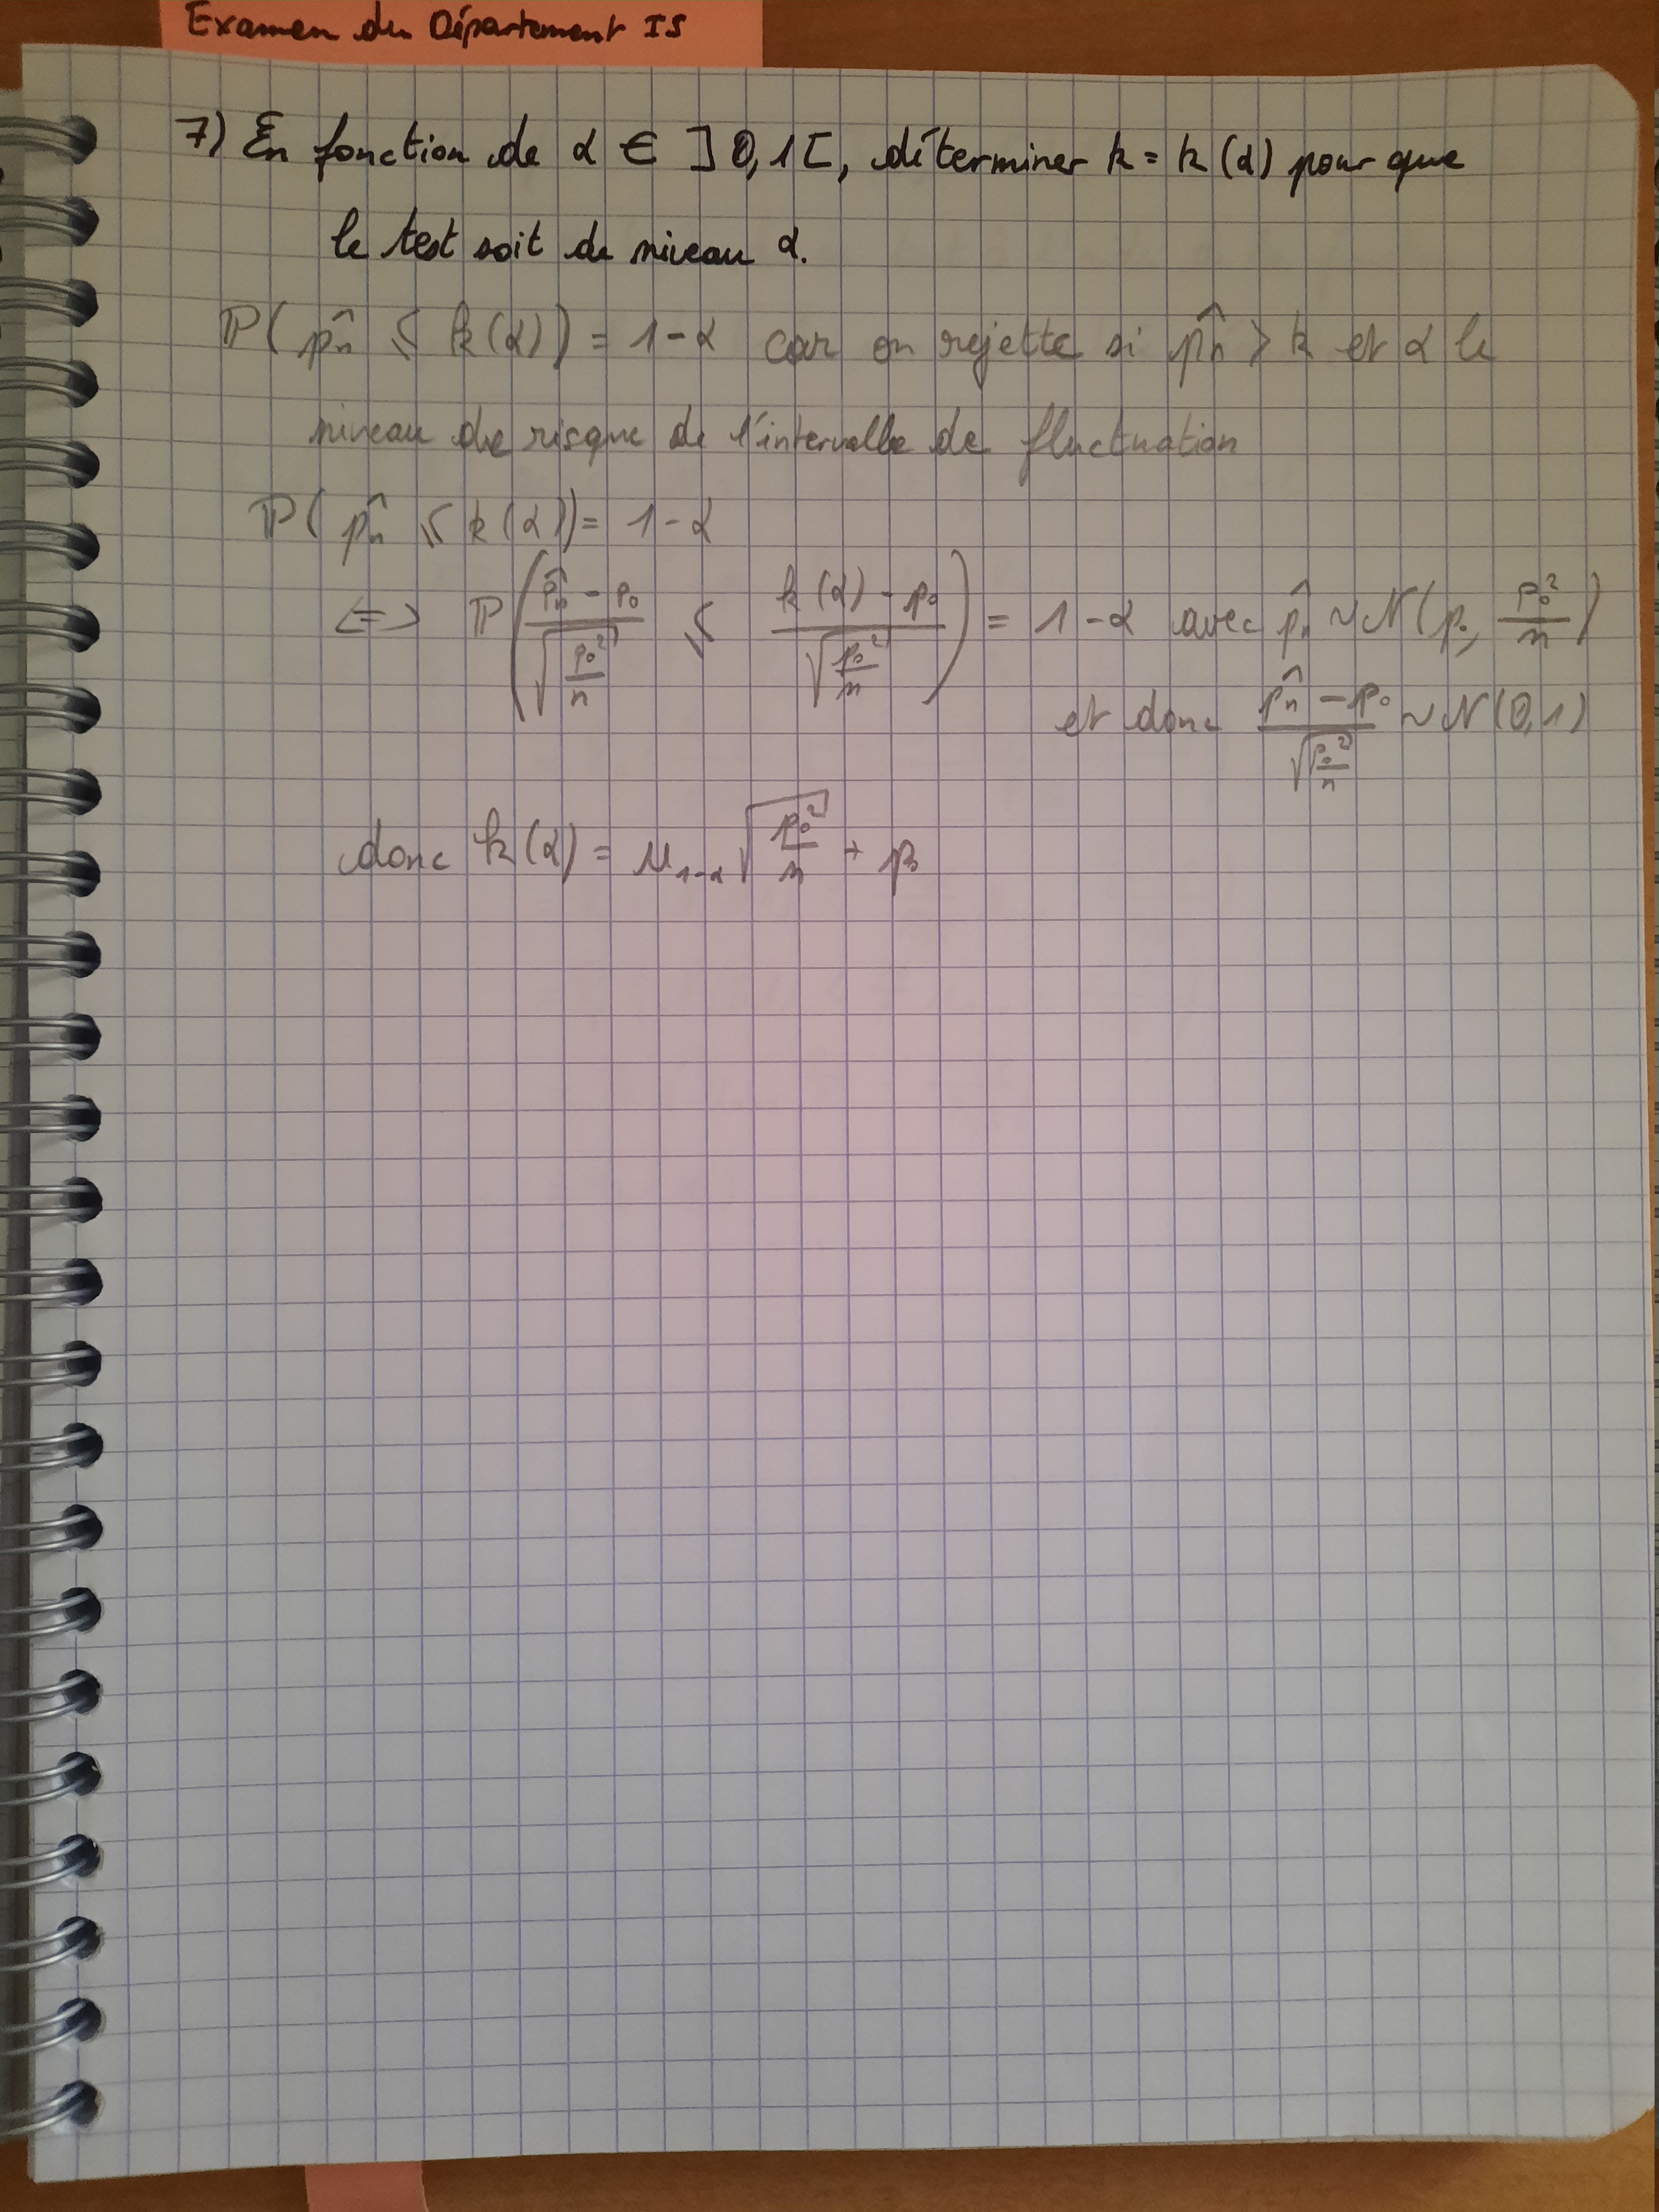 Examen du Département IS
7) En fonction de α ∈ ]0,1[, déterminer k = k(α) pour que
le test soit de niveau α.
ℙ(p̂n ≤ k(α)) = 1-α car on rejette si p̂n > k et α le
niveau de risque de l'intervalle de fluctuation
ℙ(p̂n ≤ k(α)) = 1-α
<=> ℙ((p̂n - p₀)/√(p₀²/n) ≤ (k(α) - p₀)/√(p₀²/n)) = 1-α avec p̂n ~ N(p₀, p₀²/n)
et donc (p̂n - p₀)/√(p₀²/n) ~ N(0,1)
donc k(α) = u₁₋α √(p₀²/n) + p₀